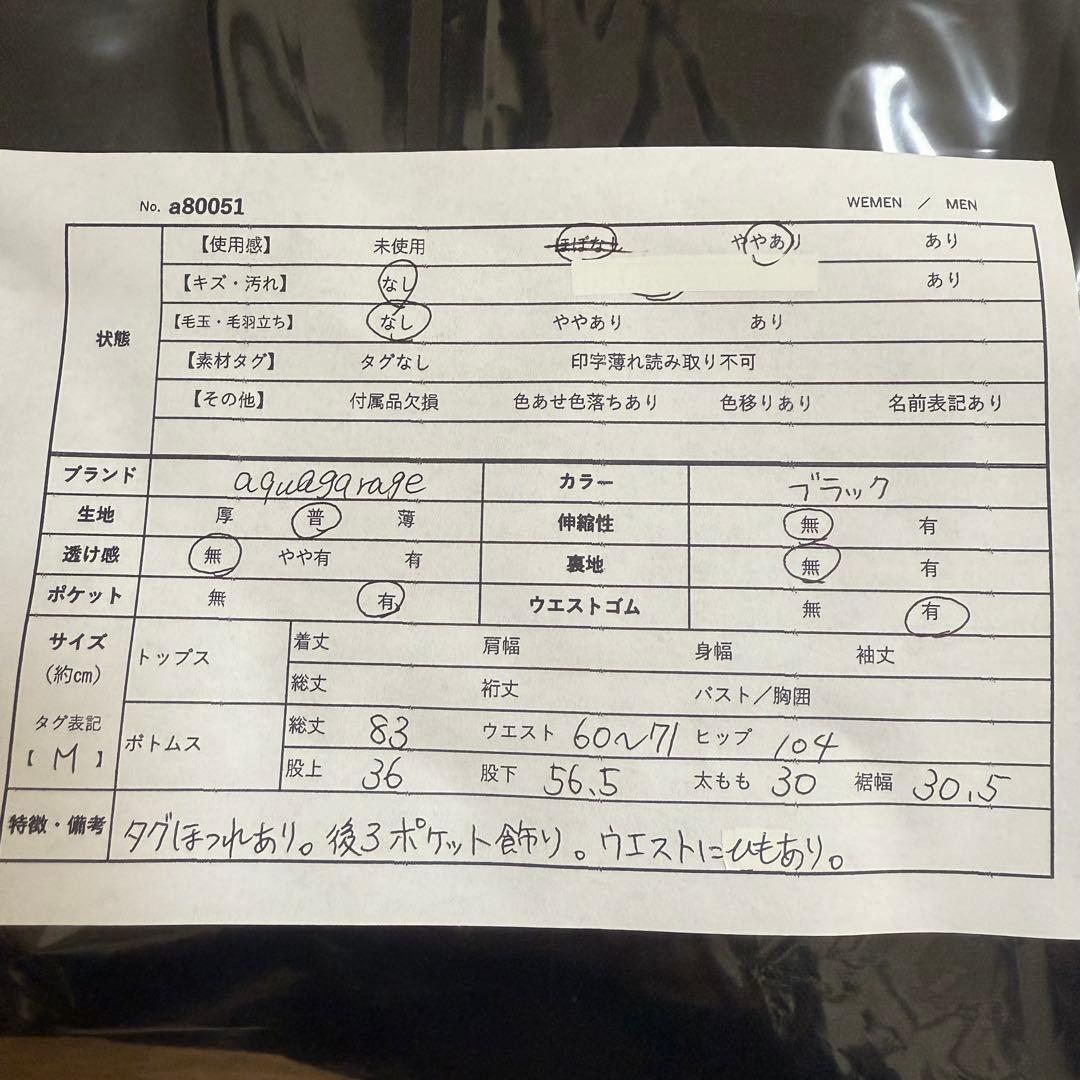 No. a80051 WEMEN / MEN
状態
【使用感】 未使用 ほぼなし ややあり あり
【キズ・汚れ】 なし あり
【毛玉・毛羽立ち】 なし ややあり あり
【素材タグ】 タグなし 印字薄れ読み取り不可
【その他】 付属品欠損 色あせ色落ちあり 色移りあり 名前表記あり
ブランド aquagarage カラー ブラック
生地 厚 普 薄 伸縮性 無 有
透け感 無 やや有 有 裏地 無 有
ポケット 無 有 ウエストゴム 無 有
サイズ (約cm) トップス 着丈 肩幅 身幅 袖丈
総丈 裄丈 バスト/胸囲
タグ表記 【 M 】 ボトムス 総丈 83 ウエスト 60〜71 ヒップ 104
股上 36 股下 56.5 太もも 30 裾幅 30.5
特徴・備考 タグほつれあり。後3ポケット飾り。ウエストにひもあり。